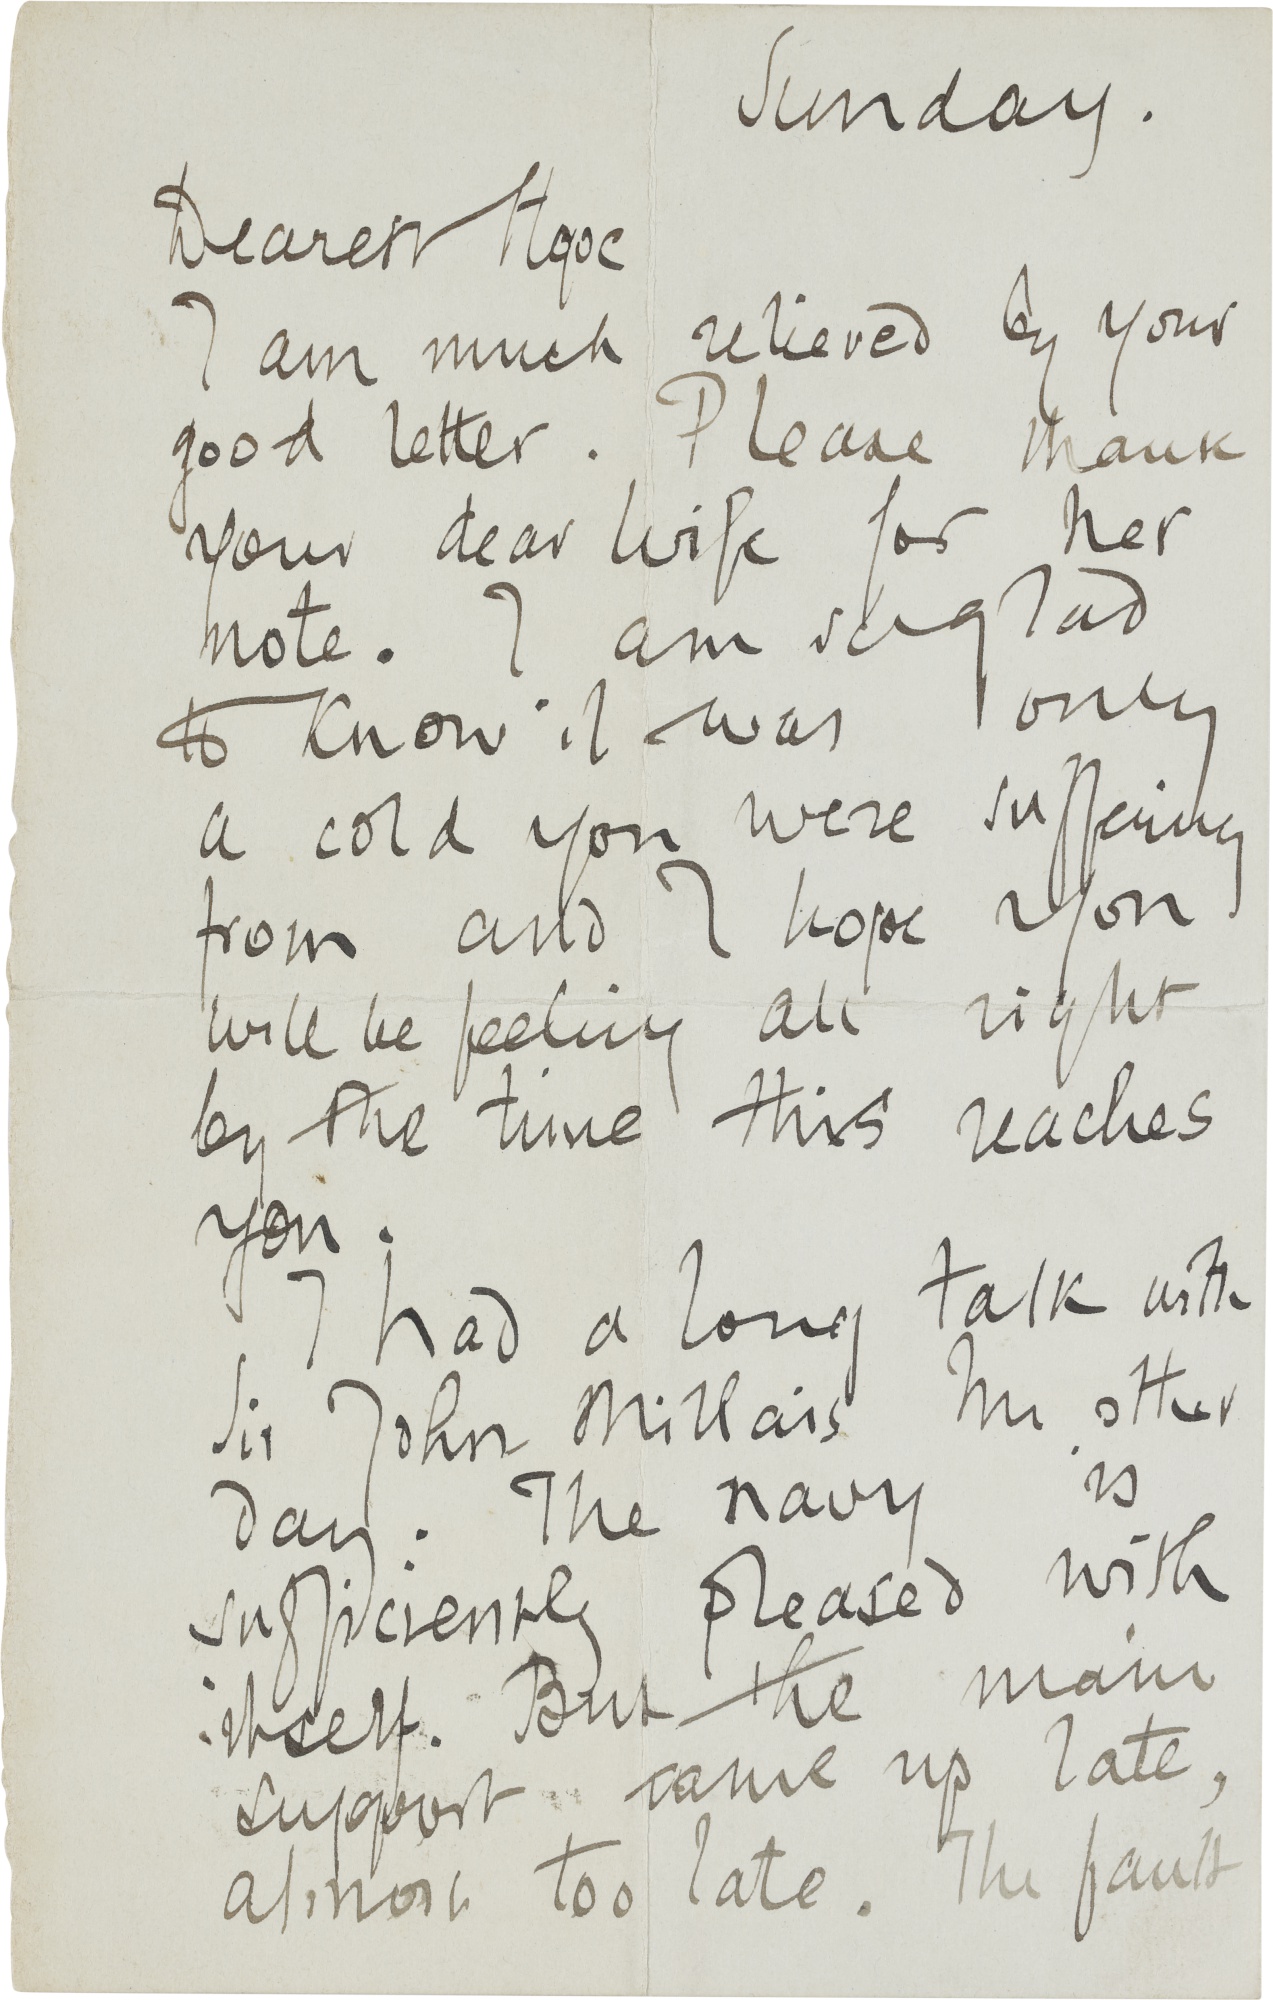 Sunday.
Dearest Hope
I am much relieved by your
good letter. Please thank
your dear wife for her
note. I am so glad
to know it was only
a cold you were suffering
from and I hope you
will be feeling all right
by the time this reaches
you.
I had a long talk with
Sir John Millais the other
day. The navy is
sufficiently pleased with
itself. But the main
support came up late,
almost too late. The fault